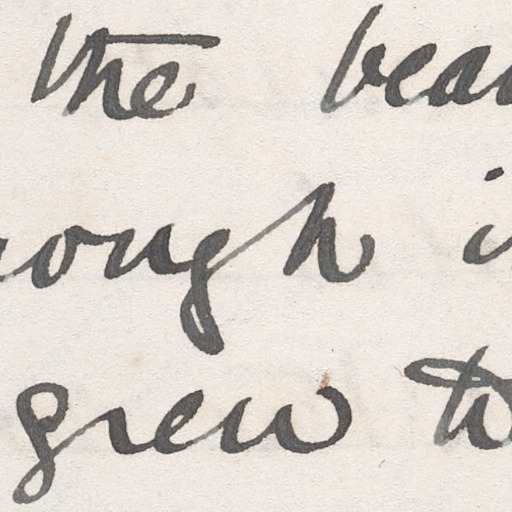 the bea
ough i
grew t